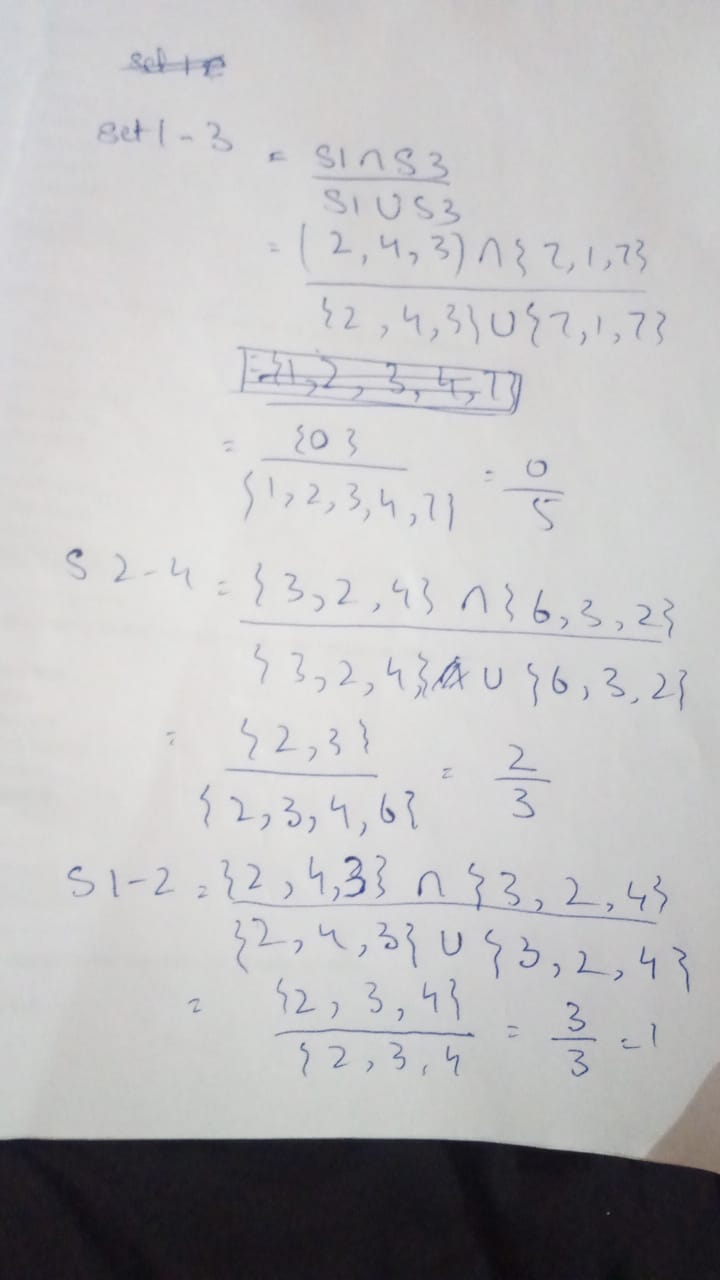 set 1 - 3 = S1 ∩ S3
S1 ∪ S3
= ( 2, 4, 3) ∩ { 7, 1, 7}
{2, 4, 3} ∪ {7, 1, 7}
= {1, 2, 3, 4, 7}
= {0}
{1, 2, 3, 4, 7} = 0/5
S 2-4 = {3, 2, 4} ∩ {6, 3, 2}
{3, 2, 4} ∪ {6, 3, 2}
= {2, 3}
{2, 3, 4, 6} = 2/3
S1-2 = {2, 4, 3} ∩ {3, 2, 4}
{2, 4, 3} ∪ {3, 2, 4}
= {2, 3, 4}
{2, 3, 4 = 3/3 = 1